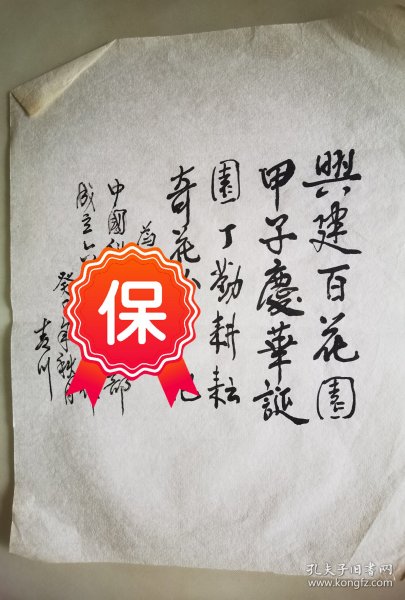 興建百花園
甲子慶華誕
園丁勤耕耘
奇花
中國
部
成立六
癸
年秋月
吉川
保
孔夫子旧书网
www.kongfz.com